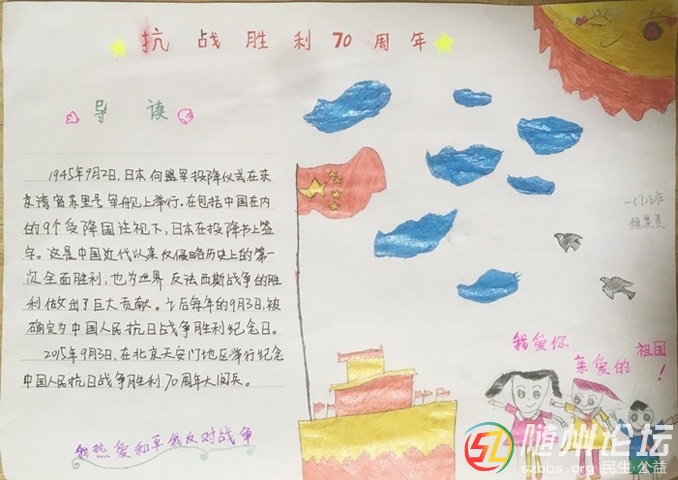 抗战胜利70周年
导读
1945年9月2日,日本向盟军投降仪式在东
京湾密苏里号军舰上举行。在包括中国在内
的9个受降国注视下,日本在投降书上签
字。这是中国近代以来反侵略历史上的第一
次全面胜利,也为世界反法西斯战争的胜
利做出了巨大贡献。之后每年的9月3日,被
确定为中国人民抗日战争胜利纪念日。
2015年9月3日,在北京天安门地区举行纪念
中国人民抗日战争胜利70周年大阅兵。
我热爱和平我反对战争
我爱你
亲爱的
祖国!
随州论坛
szbbs.org 民生·公益